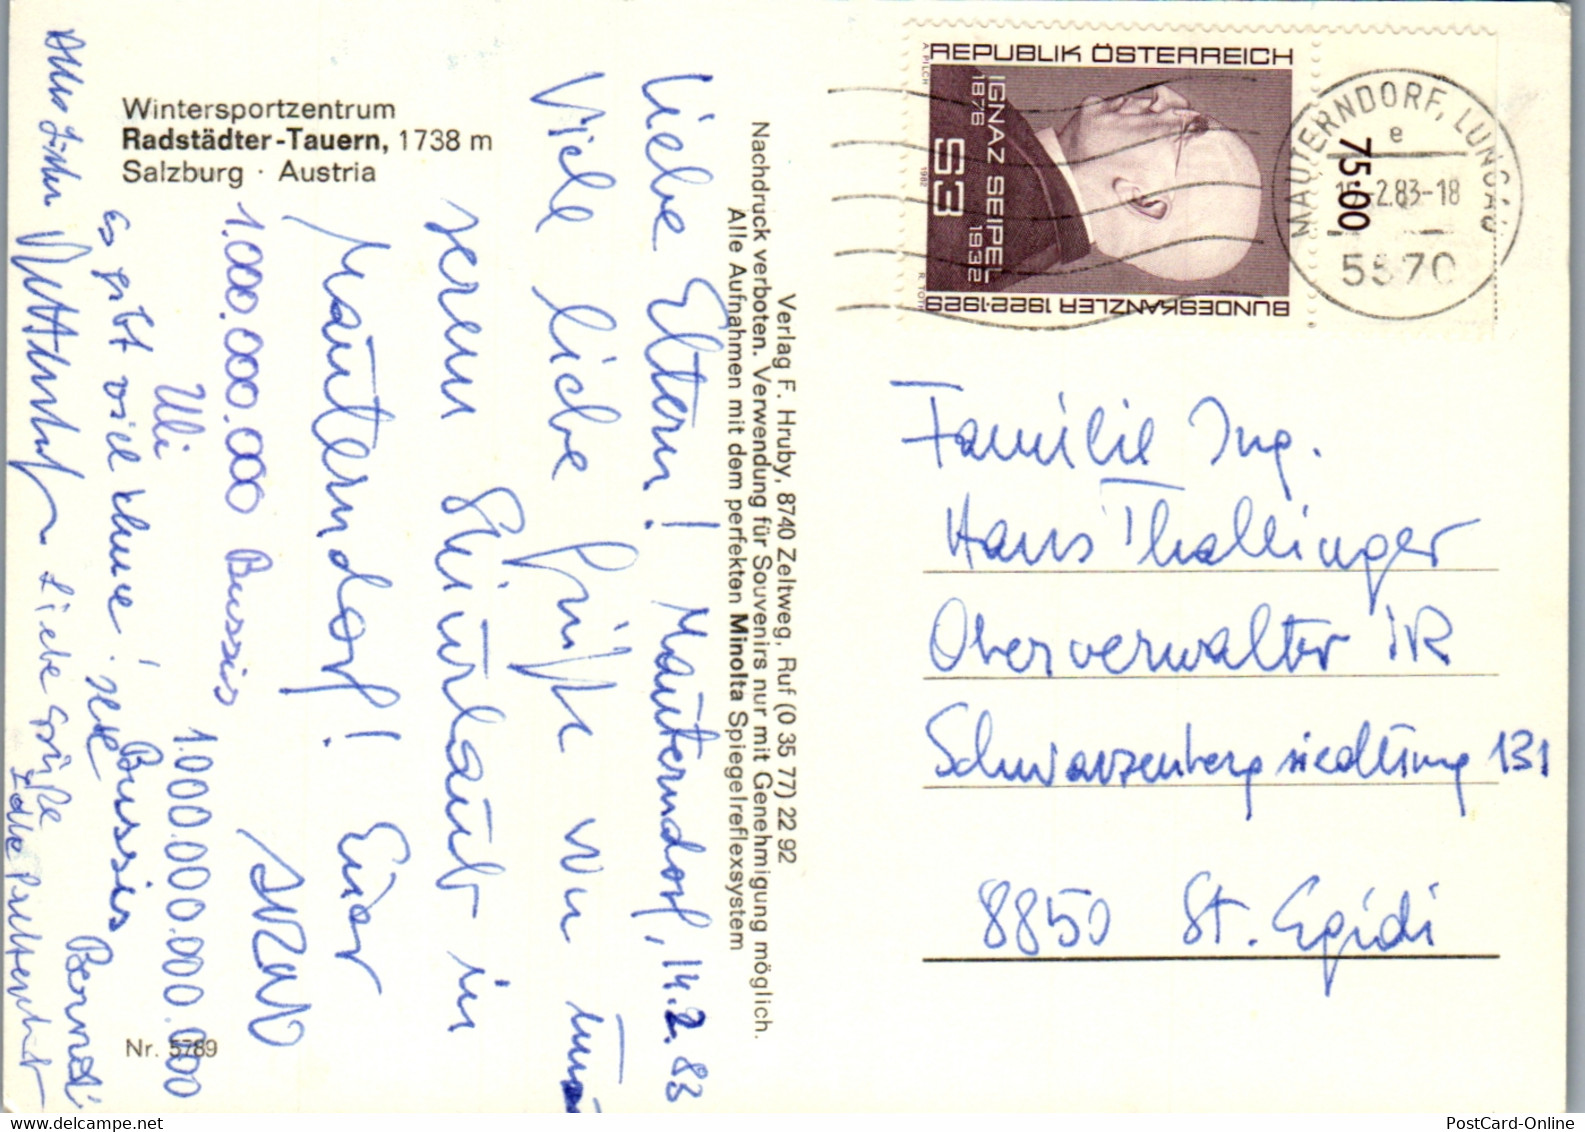 Wintersportzentrum
Radstädter-Tauern, 1738 m
Salzburg · Austria
Liebe Eltern! Mauterndorf, 14.2.83
Viele liebe Grüße von
serem Skiurlaub in
Mauterndorf! Euer
1.000.000.000 Bussis
Uli
1.000.000.000.000
Es gibt viel Schnee!
Bussis
Bernd
Liebe Grüße
Nr. 5789
Verlag F. Hruby, 8740 Zeltweg, Ruf (0 35 77) 22 92
Nachdruck verboten. Verwendung für Souvenirs nur mit Genehmigung möglich.
Alle Aufnahmen mit dem perfekten Minolta Spiegelreflexsystem
REPUBLIK ÖSTERREICH
IGNAZ SEIPEL
1876 1932
S3
BUNDESKANZLER 1922·1929
A. PILCH 1982 R. TOTH
MAUTERNDORF, LUNGAU
e
2.83-18
5570
75·00
Familie Ing.
Hans Thallinger
Oberverwalter i R
Schwarzenbergsiedlung 131
8850 St. Egidi
PostCard-Online